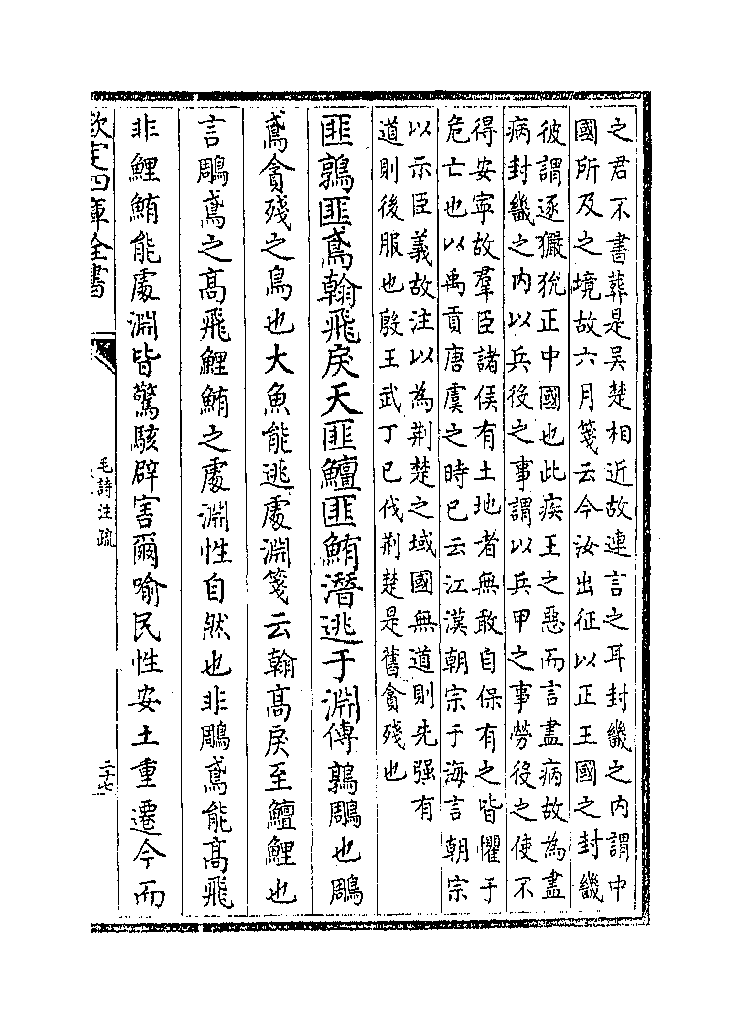 之君不書葬是吳楚相近故連言之耳封畿之内謂中
國所及之境故六月箋云今汝出征以正王國之封畿
彼謂逐玁狁正中國也此疾王之惡而言盡病故為盡
病封畿之内以兵役之事謂以兵甲之事勞役之使不
得安寧故羣臣諸侯有土地者無敢自保有之皆懼于
危亡也以禹貢唐虞之時已云江漢朝宗于海言朝宗
以示臣義故注以為荆楚之域國無道則先强有
道則後服也殷王武丁已伐荆楚是舊貪殘也
匪鶉匪鳶翰飛戾天匪鱣匪鮪潛逃于淵傳鶉鵰也鵰
鳶貪殘之鳥也大魚能逃處淵箋云翰髙戾至鱣鯉也
言鵰鳶之髙飛鯉鮪之處淵性自然也非鵰鳶能髙飛
非鯉鮪能處淵皆驚駭辟害爾喻民性安土重遷今而
欽定四庫全書
毛詩注疏
二十七